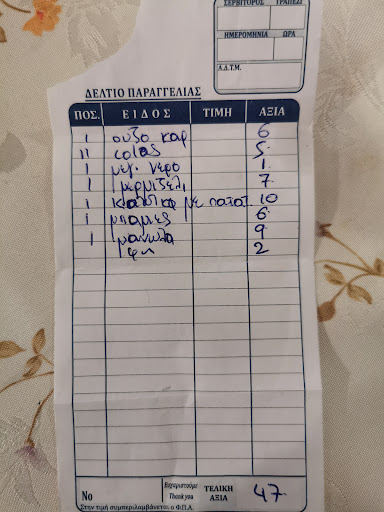 ΣΕΡΒΙΤΟΡΟΣ ΤΡΑΠΕΖΙ
ΗΜΕΡΟΜΗΝΙΑ ΩΡΑ
Α.Δ.Τ.Μ.
ΔΕΛΤΙΟ ΠΑΡΑΓΓΕΛΙΑΣ
ΠΟΣ. ΕΙΔΟΣ ΤΙΜΗ ΑΞΙΑ
1 ουζο καρ 6
11 5
1 μεγ. νερο 1
1 7
1 με πατατ. 10
1 μπαμιες 6
1 9
ψωμι 2
No Ευχαριστούμε Thank you ΤΕΛΙΚΗ ΑΞΙΑ 47
Στην τιμή συμπεριλαμβάνεται ο Φ.Π.Α.